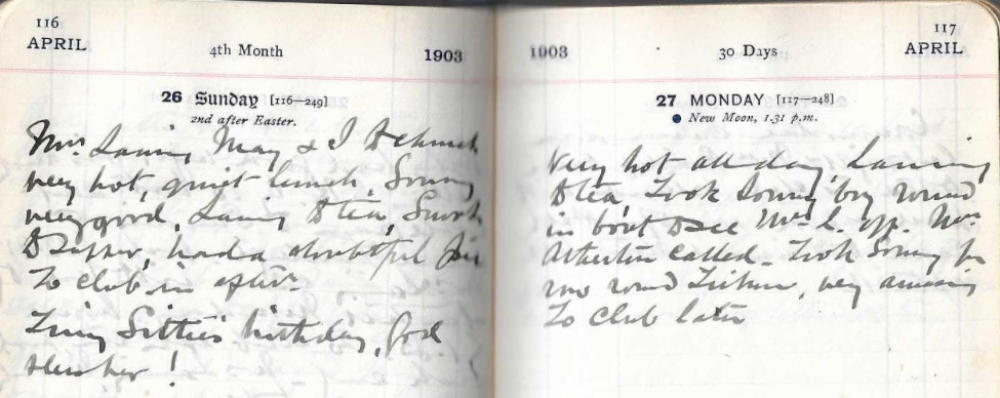 116
APRIL
4th Month
1903
26 Sunday [116—249]
2nd after Easter.
Mrs Laning May & I to church
very hot, quiet lunch, Sonny
very good, Laning to tea,
to supper, had a doubtful
To club in after
birthday, God
her!
117
APRIL
1903
30 Days
27 MONDAY [117—248]
New Moon, 1.31 p.m.
Very hot all day, Laning
to tea, Took Sonny boy round
in boat to see Mrs L. off. Mrs
Atherton called - Took Sonny for
row round, very amusing
To club later